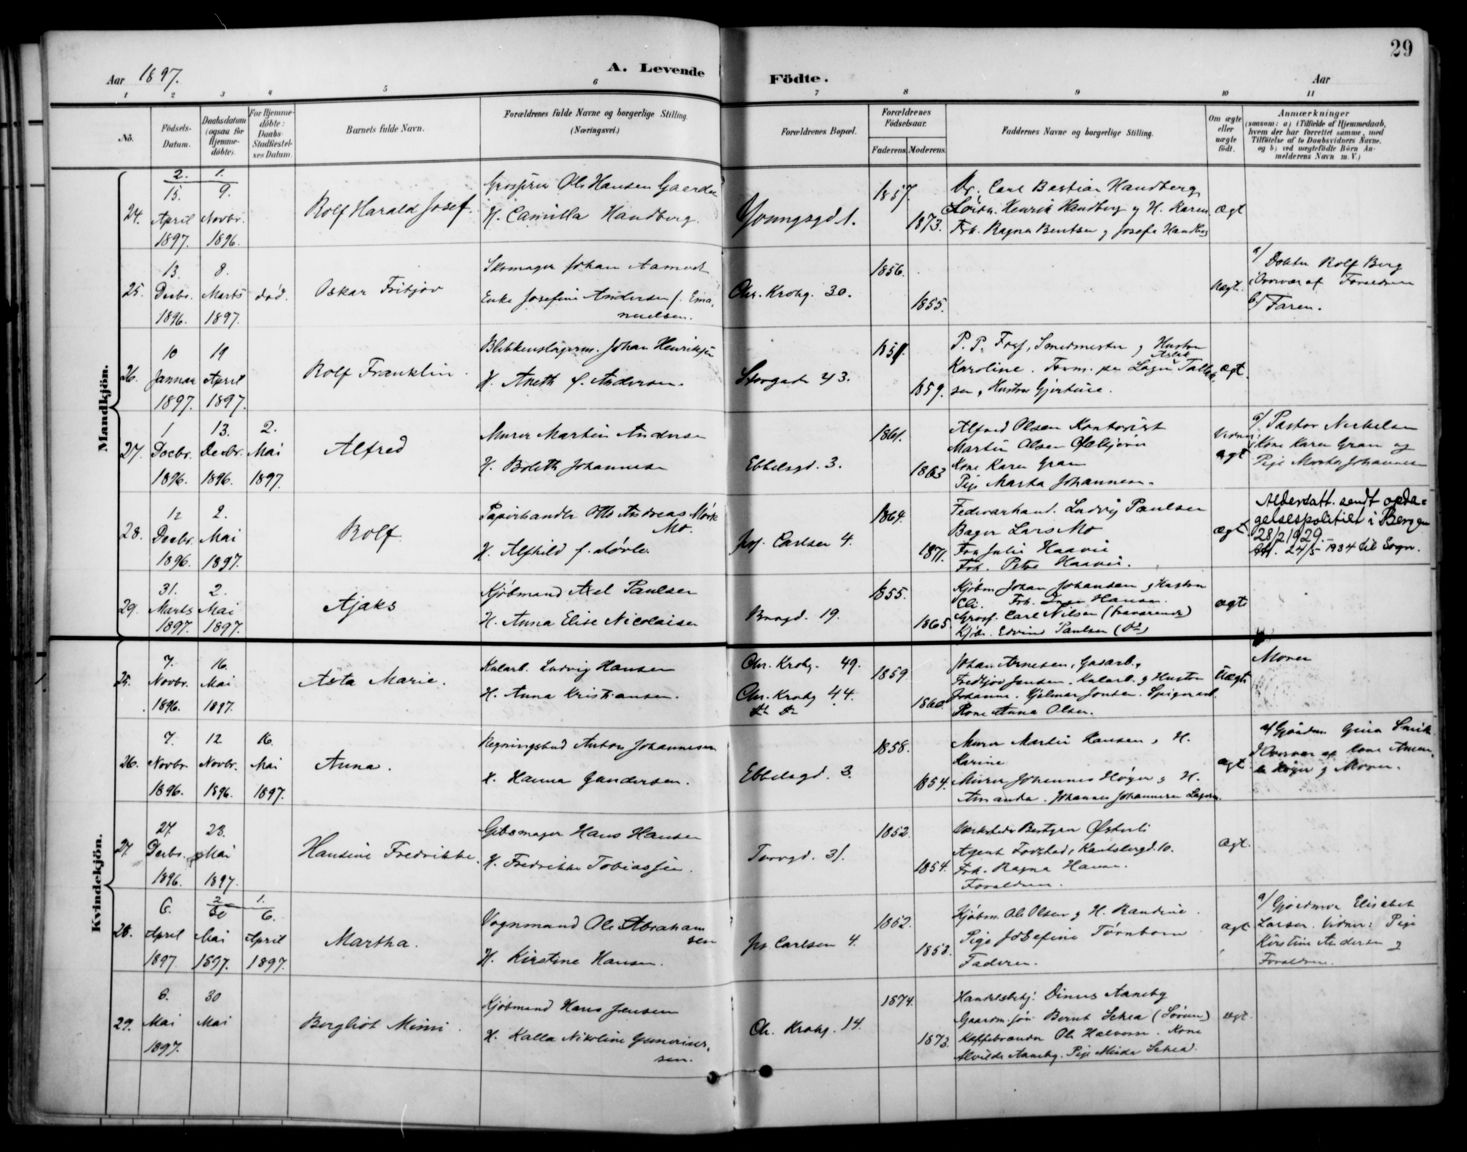 29
Aar 1897.
A. Levende Födte.
Aar
1 2 3 4 5 6 7 8 9 10 11
No.
Födsels-Datum.
Daabsdatum (ogsaa for Hjemme-døbte).
For Hjemme-døbte: Daabs-Stadfæstel-ses Datum.
Barnets fulde Navn.
Forældrenes fulde Navne og borgerlige Stilling.
(Næringsvei.)
Forældrenes Bopæl.
Forældrenes Födselsaar.
Faderens. Moderens.
Faddernes Navne og borgerlige Stilling.
Om ægte eller uægte födt.
Anmærkninger
Mandkjön.
24. 15 April 1897. 9. Novbr. 1896.
Rolf Harald Josef.
Ole Hansen
H. Camilla Handberg
Youngsgd. 1.
1857. 1873.
Carl Bastian Handberg
Henrik Handberg og H. Karen
Frk. Ragna Berntsen og Josefa Handberg
ægt
25. 13. Decbr. 1896. 8. Marts 1897. død.
Oskar Fritjov
Skomager Johan
Enke Josefine Andersen f. Emanuelsen.
Chr. Krohg. 30.
1856. 1855.
uægt.
a/ Doktor Rolf Berg
i Overvær af Forældrene
b/ Faren.
26. 10 Januar 1897. 19 April 1897.
Rolf Franklin.
Johan Henriksen
H. Aneth f. Andersen.
Storgad. 43.
1859.
Smedmester og Hustru
Karoline.
Hustru Gjertine.
ægt.
27. 1 Decbr. 1896. 13. Decbr. 1896. 2. Mai 1897.
Alfred
Murer Martin Andersen
H. Bolette Johannesen
Ebbelsgd. 3.
1861. 1863
Alfred Olsen Kontorist
Martin Olsen
Kone Karen Gran
Pige Marta Johannesen.
ægt
a/ Pastor
Kone Karen Gran og
Pige Marta Johannesen
28. 12 Decbr. 1896. 2. Mai 1897.
Rolf.
Papirhandler Otto Andreas Mørk
Mo.
H. Alfhild f. Løvlie.
prof. Carlsen 4.
1864. 1871.
Fedevarehandl. Ludvig Paulsen
Bager Lars Mo
Fru Julie Haavie
Frk. Petra Haavie.
ægt
Aldersatt. sendt opda-
gelsespolitiet i Bergen
28/2 1929.
24/5-1934 til Sogn.
29. 31. Marts 1897. 2. Mai 1897.
Ajaks
Kjøbmand Axel Paulsen
H. Anna Elise Nicolaisen
Brogd. 19.
1855. 1865.
Kjøbm. Johan Johansen og Hustru
Frk. Hansen.
Gross. Carl Nilsen (fraværende)
Kjøb. Edvin Paulsen (Do)
ægt
Kvindekjön.
25. 7. Novbr. 1896. 16. Mai 1897.
Asta Marie.
Kularb. Ludvig Hansen
H. Anna Kristiansen.
Chr. Krohg. 49.
Chr. Krohg 44.
1859 1860
Johan Arnesen, Gasarb.,
Fredthjov Jensen. Kularb. og Hustru
Johanne. Hjelmar Jonsen. Spigerarb.
Kone Anna Olsen.
Uægt
Moren
26. 7. Novbr. 1896. 12 Novbr. 1896. 16. Mai 1897.
Anna.
Regningsbud Anton Johannesen
H. Hanna Gundersen.
Ebbelsgd. 3.
1858. 1854.
Murer Martin Hansen, H.
Karine
Murer Johannes Høyer og H.
Amanda. Johannes Johannesen
ægt
a/ Gjordem. Gina
i Overvær af Kone Aman-
da Høyer og Moren.
27. 27. Decbr. 1896. 23. Mai 1897.
Hansine Fredrikke.
Gibsmager Hans Hansen
H. Fredrikke Tobiassen.
Torvgd. 31.
1852. 1854.
Bestyrer Østerli
Agent
Frk. Ragna Hansen
Forældrene.
ægt.
28. 6. April 1897. 30 Mai 1897. 6. April 1897.
Martha.
Vognmand Ole Abrahamsen
H. Kirstine Hansen.
prs Carlsen 4.
1862. 1853.
Kjøbm. Ole Olsen og H. Randine.
Pige Josefine Tørnborn
Faderen.
ægt
a/ Gjordemor Elisabet
Larsen. Vidner: Pige
Kirstine Andersen og
Forældrene.
29. 6. Mai 1897. 30 Mai
Bergliot Mimi.
Kjøbmand Hans Jensen
H. Kalla Nikoline Gunerius-
sen.
Ch. Krohg. 14.
1874. 1873.
Handelsbetj. Dinus Aaneby
Gaardm.søn Bernt Schea (Sørum)
Kaffebrænder Ole Halvorsen. Kone
Alvilde Aaneby. Pige Minda Schea.
ægt